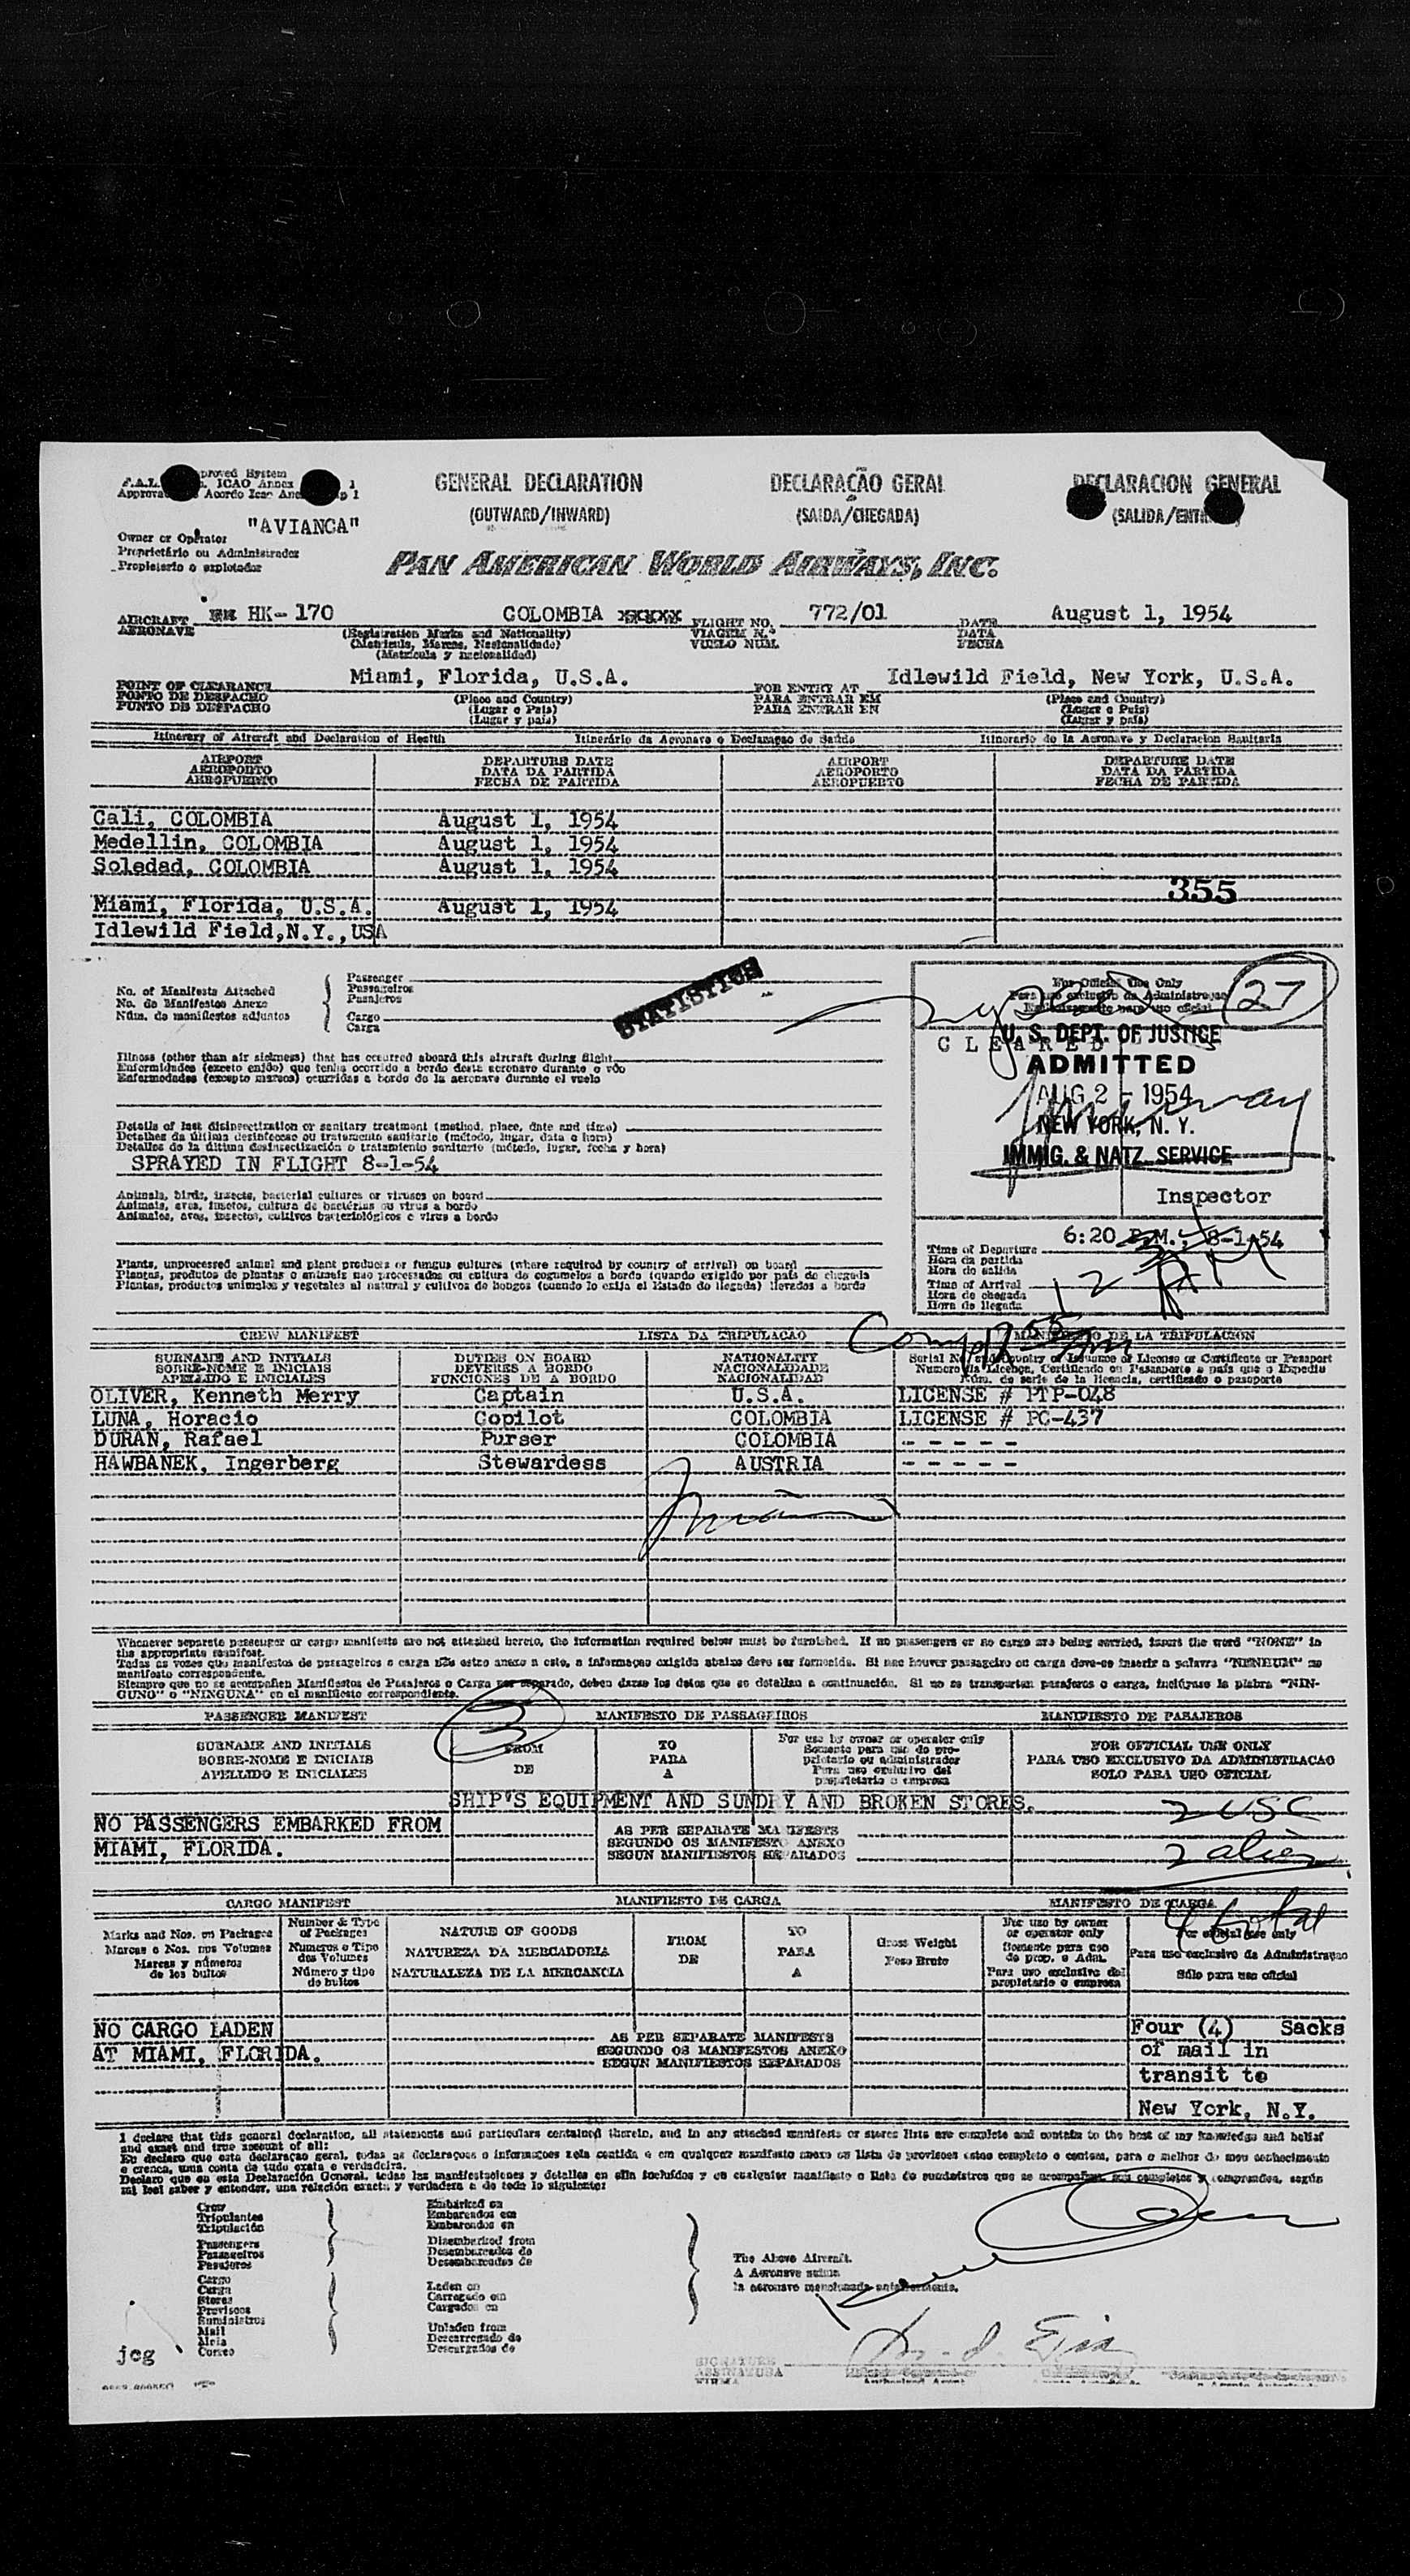 GENERAL DECLARATION DECLARAÇÃO GERAL DECLARACION GENERAL
(OUTWARD/INWARD) (SAIDA/CHEGADA) (SALIDA/
"AVIANCA"
Owner or Operator
Proprietário ou Administrador
Propietario o explotador
PAN AMERICAN WORLD AIRWAYS, INC.
AIRCRAFT HK-170 COLOMBIA FLIGHT NO. 772/01 DATE August 1, 1954
AERONAVE VIAGEM N.º DATA
VUELO NUM. FECHA
(Registration Marks and Nationality)
(Matricula, Marcas, Nacionalidade)
(Matricula y nacionalidad)
POINT OF CLEARANCE Miami, Florida, U.S.A. FOR ENTRY AT Idlewild Field, New York, U.S.A.
PONTO DE DESPACHO (Place and Country) PARA ENTRAR EM (Place and Country)
PUNTO DE DESPACHO (Lugar o Pais) PARA ENTRAR EN (Lugar o Pais)
(Lugar y pais) (Lugar y pais)
Itinerary of Aircraft and Declaration of Health Itinerário da Aeronave e Declaraçao de Saúde Itinerario de la Aeronave y Declaracion Sanitaria
AIRPORT DEPARTURE DATE AIRPORT DEPARTURE DATE
AEROPORTO DATA DA PARTIDA AEROPORTO DATA DA PARTIDA
AEROPUERTO FECHA DE PARTIDA AEROPUERTO FECHA DE PARTIDA
Cali, COLOMBIA August 1, 1954
Medellin, COLOMBIA August 1, 1954
Soledad, COLOMBIA August 1, 1954
355
Miami, Florida, U.S.A. August 1, 1954
Idlewild Field,N.Y.,USA
No. of Manifests Attached
No. de Manifestos Anexo
Núm. de manifiestos adjuntos
Passenger
Passageiros
Pasajeros
Cargo
Carga
STATISTICS
For Official Use Only
27
CLEARED
U. S. DEPT. OF JUSTICE
ADMITTED
AUG 2 - 1954
NEW YORK, N. Y.
IMMIG. & NATZ. SERVICE
Inspector
Illness (other than air sickness) that has occurred aboard this aircraft during flight
Enfermidades (exceto enjôo) que tenha ocorrido a bordo desta aeronave durante o vôo
Enfermedades (excepto mareos) ocurridas a bordo de la aeronave durante el vuelo
Details of last disinsectization or sanitary treatment (method, place, date and time)
Detalhes da última desinfeccao ou tratamento sanitario (método, lugar, data e hora)
Detalles de la última desinsectización o tratamiento sanitario (método, lugar, fecha y hora)
SPRAYED IN FLIGHT 8-1-54
Animals, birds, insects, bacterial cultures or viruses on board
Animais, aves, insetos, cultura de bactérias ou virus a bordo
Animales, aves, insectos, cultivos bacteriológicos o virus a bordo
Plants, unprocessed animal and plant products or fungus cultures (where required by country of arrival) on board
Plantas, produtos de plantas o animais nao processados ou cultura de cogumelos a bordo (quando exigido por pais de chegada
Plantas, productos animales y vegetales al natural y cultivos de hongos (cuando lo exija el Estado de llegada) llevados a bordo
6:20 P.M., 8-1-54
Time of Departure
Hora da partida
Hora de salida
Time of Arrival
Hora de chegada
Hora de llegada
CREW MANIFEST LISTA DA TRIPULACAO MANIFIESTO DE LA TRIPULACION
SURNAME AND INITIALS DUTIES ON BOARD NATIONALITY
SOBRE-NOME E INICIAIS DEVERES A BORDO NACIONALIDADE
APELLIDO E INICIALES FUNCIONES DE A BORDO NACIONALIDAD
Serial No. and Country of Issuance of License or Certificate or Passport
Núm. de serie de la licencia, certificado o pasaporte
OLIVER, Kenneth Merry Captain U.S.A. LICENSE # PTP-048
LUNA, Horacio Copilot COLOMBIA LICENSE # PC-437
DURAN, Rafael Purser COLOMBIA - - - - -
HAWBANEK, Ingerberg Stewardess AUSTRIA - - - - -
Whenever separate passenger or cargo manifests are not attached hereto, the information required below must be furnished. If no passengers or no cargo are being carried, insert the word "NONE" in
the appropriate manifest.
Todas as vezes que manifestos de passageiros e carga não estro anexo a este, a informaçao exigida abaixo deve ser fornecida. Si nao houver passageiro ou carga deve-se inserir a palavra "NENHUM" no
manifesto correspondente.
Siempre que no se acompañen Manifiestos de Pasajeros o Carga por separado, deben darse los datos que se detallan a continuación. Si no se transportan pasajeros o carga, inclúyase la plabra "NIN-
GUNO" o "NINGUNA" en el manifiesto correspondiente.
PASSENGER MANIFEST MANIFESTO DE PASSAGEIROS MANIFIESTO DE PASAJEROS
3
SURNAME AND INITIALS FROM TO For use by owner or operator only FOR OFFICIAL USE ONLY
SOBRE-NOME E INICIAIS DE PARA PARA USO EXCLUSIVO DA ADMINISTRACAO
APELLIDO E INICIALES A SOLO PARA USO OFICIAL
SHIP'S EQUIPMENT AND SUNDRY AND BROKEN STORES.
2 USC
NO PASSENGERS EMBARKED FROM AS PER SEPARATE MANIFESTS
MIAMI, FLORIDA. SEGUNDO OS MANIFESTO ANEXO
SEGUN MANIFIESTOS SEPARADOS
2 alien
4 total
CARGO MANIFEST MANIFIESTO DE CARGA MANIFESTO DE CARGA
Marks and Nos. on Packages Number & Type of Packages NATURE OF GOODS FROM TO Gross Weight For use by owner or operator only For official use only
Marcas e Nos. nos Volumes Numeros e Tipo dos Volumes NATUREZA DA MERCADORIA DE PARA Peso Bruto Para uso exclusivo da Administraçao
Marcas y números de los bultos Número y tipo de bultos NATURALEZA DE LA MERCANCIA A Sólo para uso oficial
NO CARGO LADEN AS PER SEPARATE MANIFESTS Four (4) Sacks
AT MIAMI, FLORIDA. SEGUNDO OS MANIFESTOS ANEXO of mail in
SEGUN MANIFIESTOS SEPARADOS transit to
New York, N.Y.
I declare that this general declaration, all statements and particulars contained therein, and in any attached manifests or stores lists are complete and contain to the best of my knowledge and belief
and exact and true account of all:
mi leal saber y entender, una relación exacta y verdadera a de todo lo siguiente:
Crew
Tripulantes
Tripulación
Passengers
Passageiros
Pasajeros
Cargo
Carga
Stores
Suministros
Mail
Correo
Embarked on
Embarcados em
Embarcados en
Disembarked from
Desembarcados de
Desembarcados de
Laden on
Carregado em
Cargados en
Unladen from
Descarregado de
Descargados de
The Above Aircraft.
la aeronave mencionada anteriormente.
jcg
SIGNATURE
ASSINATURA
FIRMA
Authorized Agent